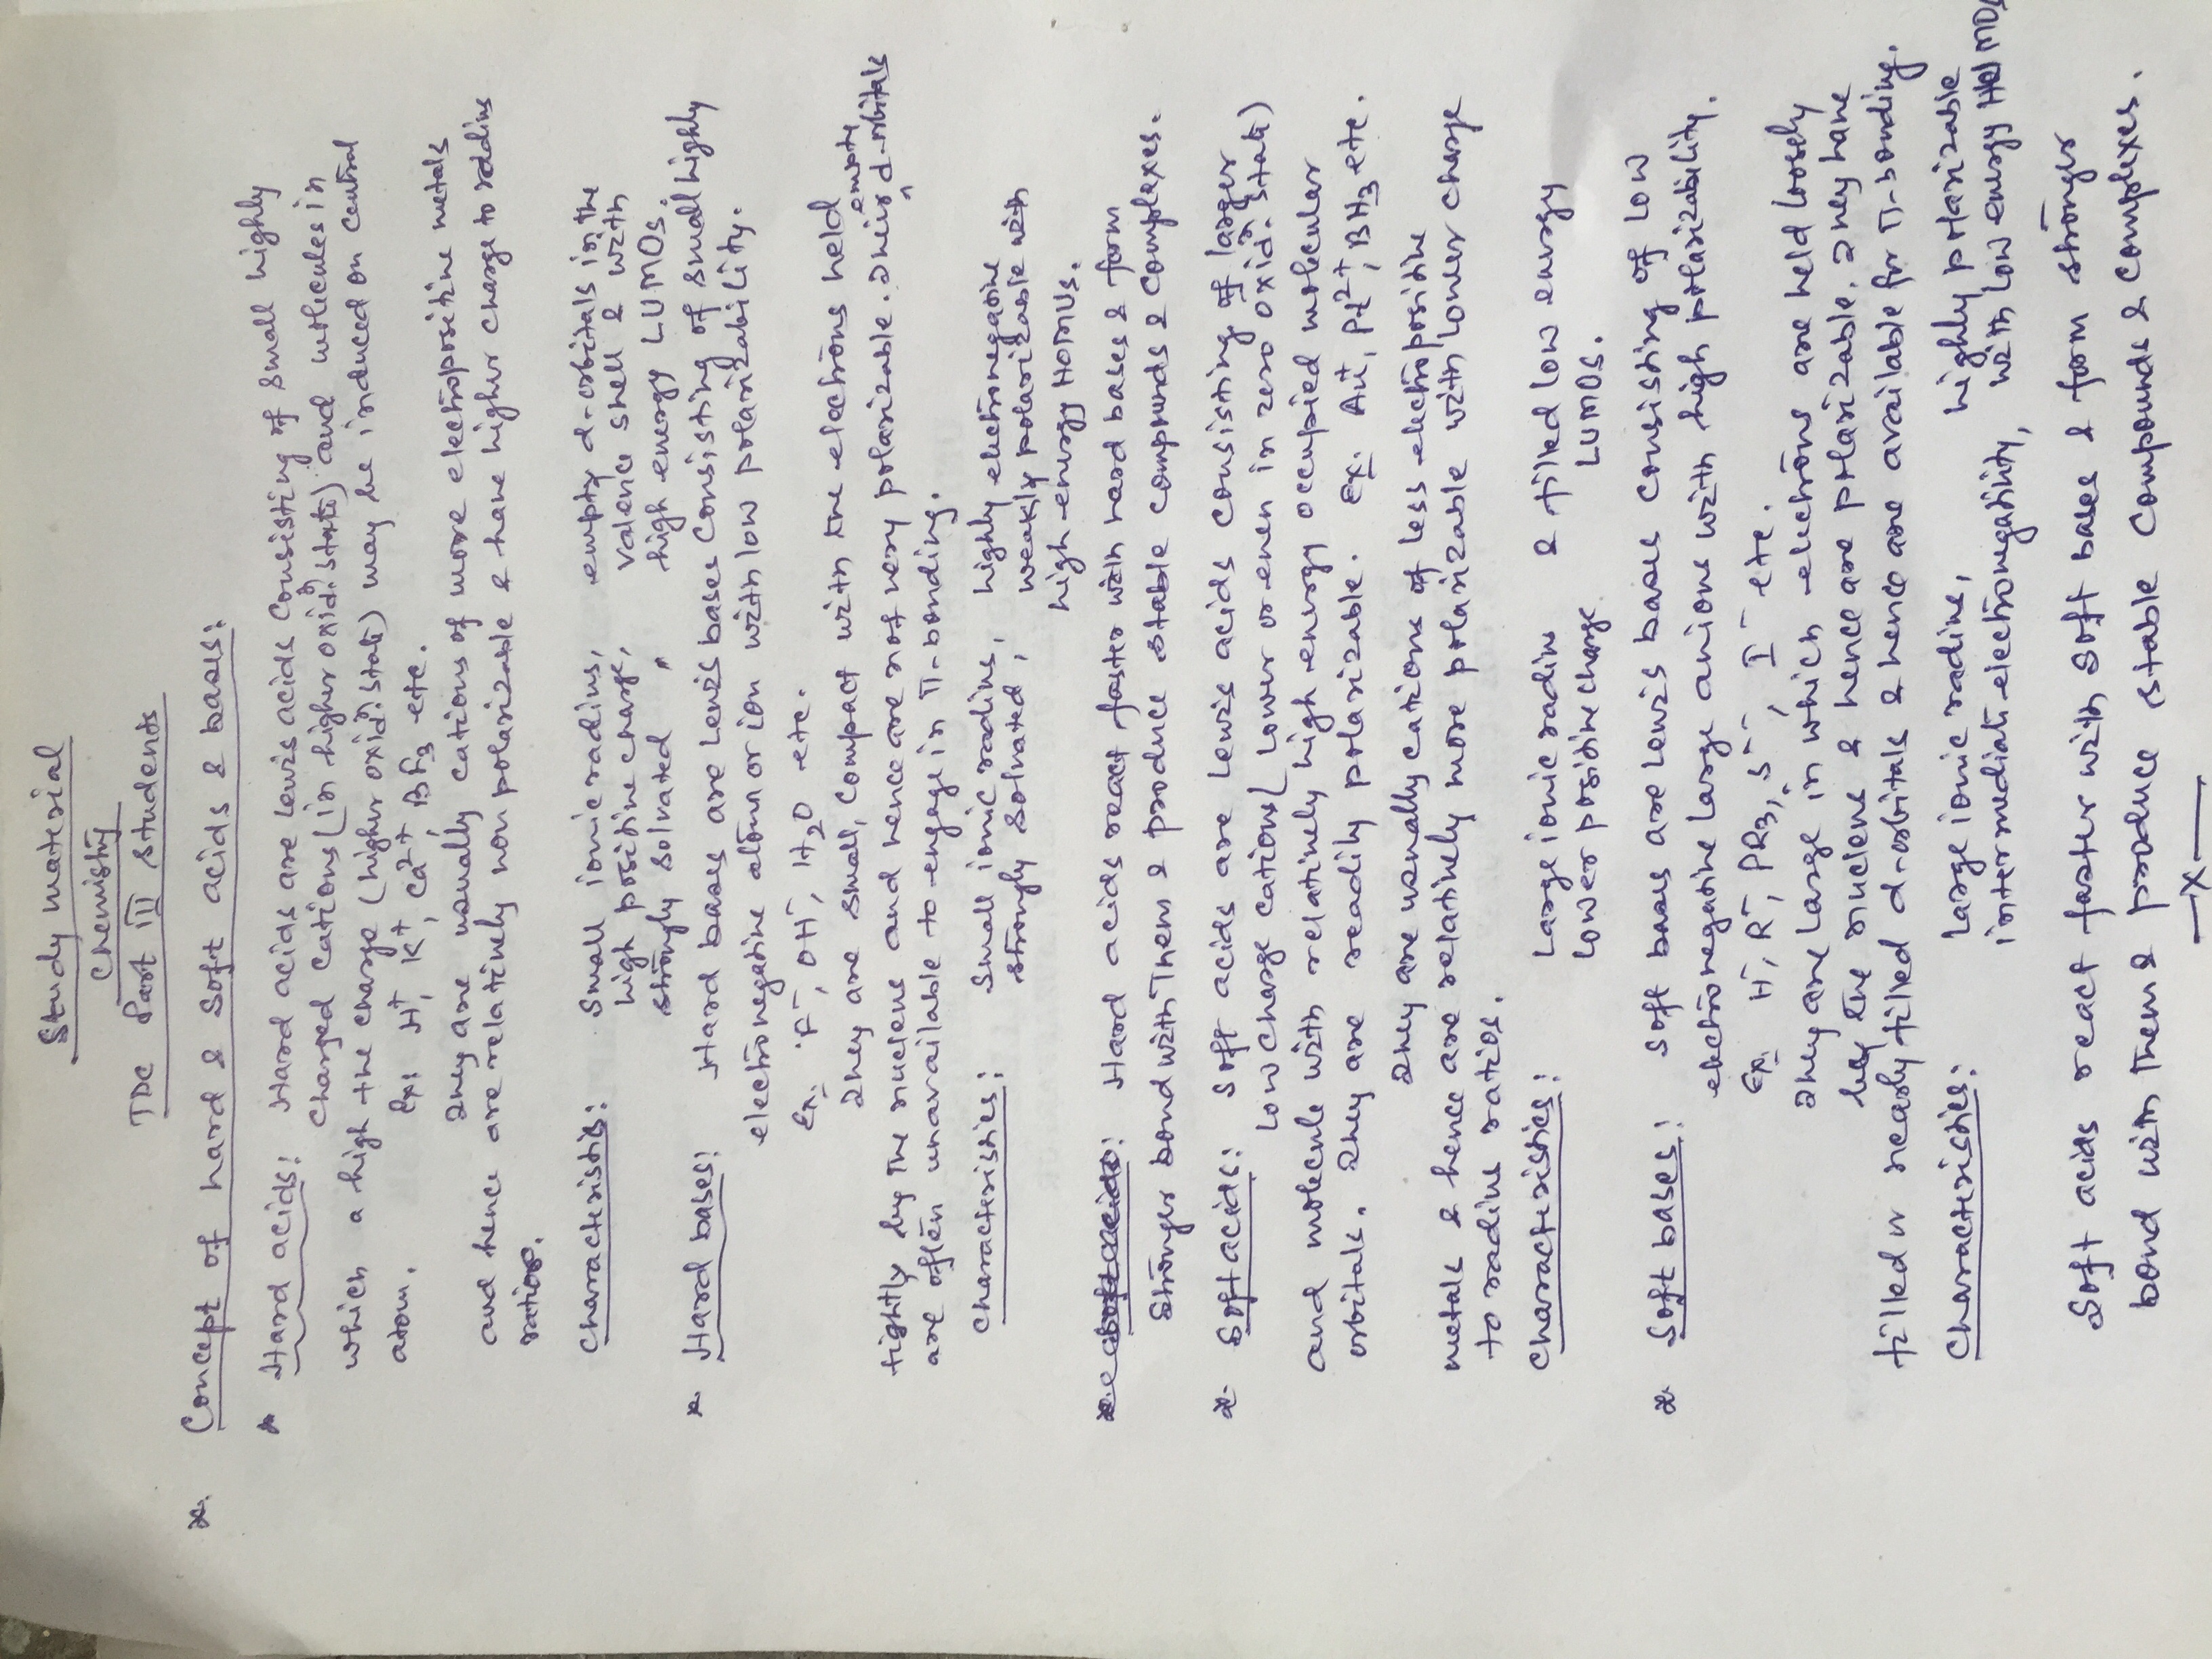 Study material
Chemistry
TDC Part III students
* Concept of hard & soft acids & bases:
* Hard acids: Hard acids are lewis acids consisting of small highly
charged cations (in higher oxidn. state) and molecules in
which a high +ve charge (higher oxidn. state) may be induced on central
atom. Ex: H+, K+, Ca2+, BF3 etc.
They are usually cations of more electropositive metals
and hence are relatively non polarizable & have higher charge to radius
ratios.
Characteristics: Small ionic radius, empty d-orbitals in the
high positive charge, valence shell & with
strongly solvated, high energy LUMOs.
* Hard bases: Hard bases are Lewis bases consisting of small highly
electronegative atom or ion with low polarizability.
Ex. F-, OH-, H2O etc.
They are small, compact with the electrons held
tightly by the nucleus and hence are not very polarizable. Their empty d-orbitals
are often unavailable to engage in π-bonding.
Characteristics: Small ionic radius, highly electronegative
strongly solvated, weakly polarizable with
high-energy HOMOs.
Hard acids react faster with hard bases & form
stronger bond with them & produce stable compounds & complexes.
* Soft acids: Soft acids are Lewis acids consisting of larger
low charge cations (lower or even in zero oxidn. state)
and molecule with relatively high energy occupied molecular
orbitals. They are readily polarizable. Ex. Au+, Pt2+, BH3 etc.
They are usually cations of less electropositive
metals & hence are relatively more polarizable with lower charge
to radius ratios.
Characteristics: Large ionic radius & filled low energy
Lower positive charge LUMOs.
* Soft bases: Soft bases are Lewis bases consisting of low
electronegative large anions with high polarizability.
Ex. H-, R-, PR3, S--, I- etc.
They are large in which electrons are held loosely
by the nucleus & hence are polarizable. They have
filled or nearly filled d-orbitals & hence are available for π-bonding.
Characteristics: Large ionic radius, highly polarizable
intermediate electronegativity, with low energy HOMOs
Soft acids react faster with soft bases & form stronger
bond with them & produce stable compounds & complexes.
—X—